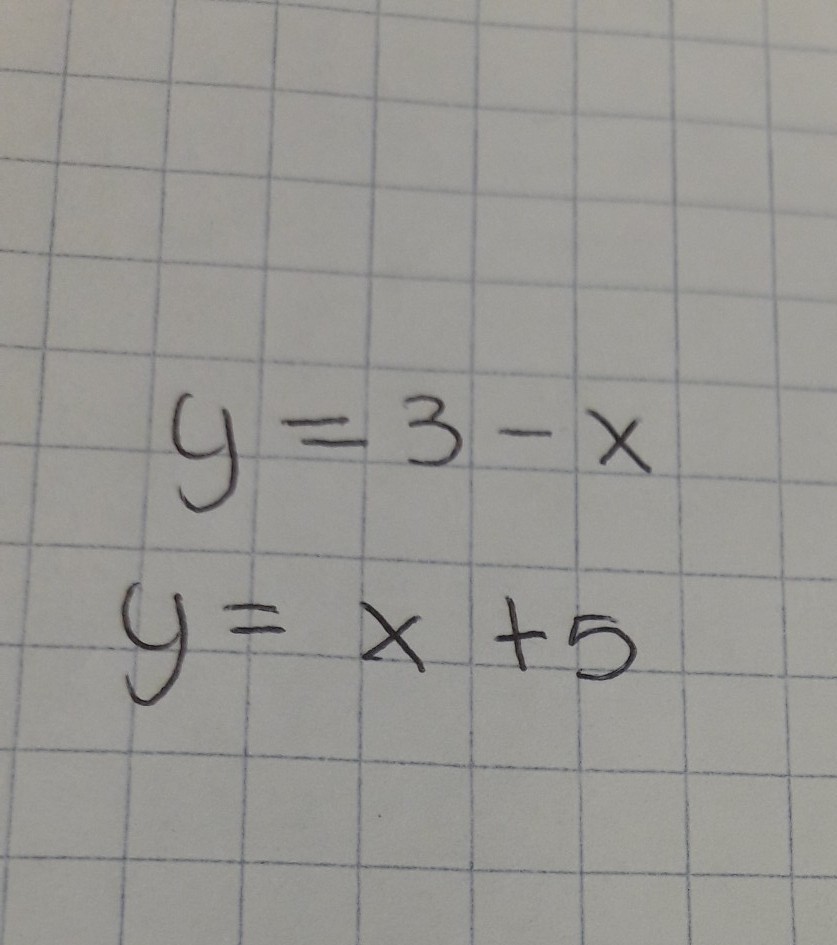 y = 3 - x
y = x + 5